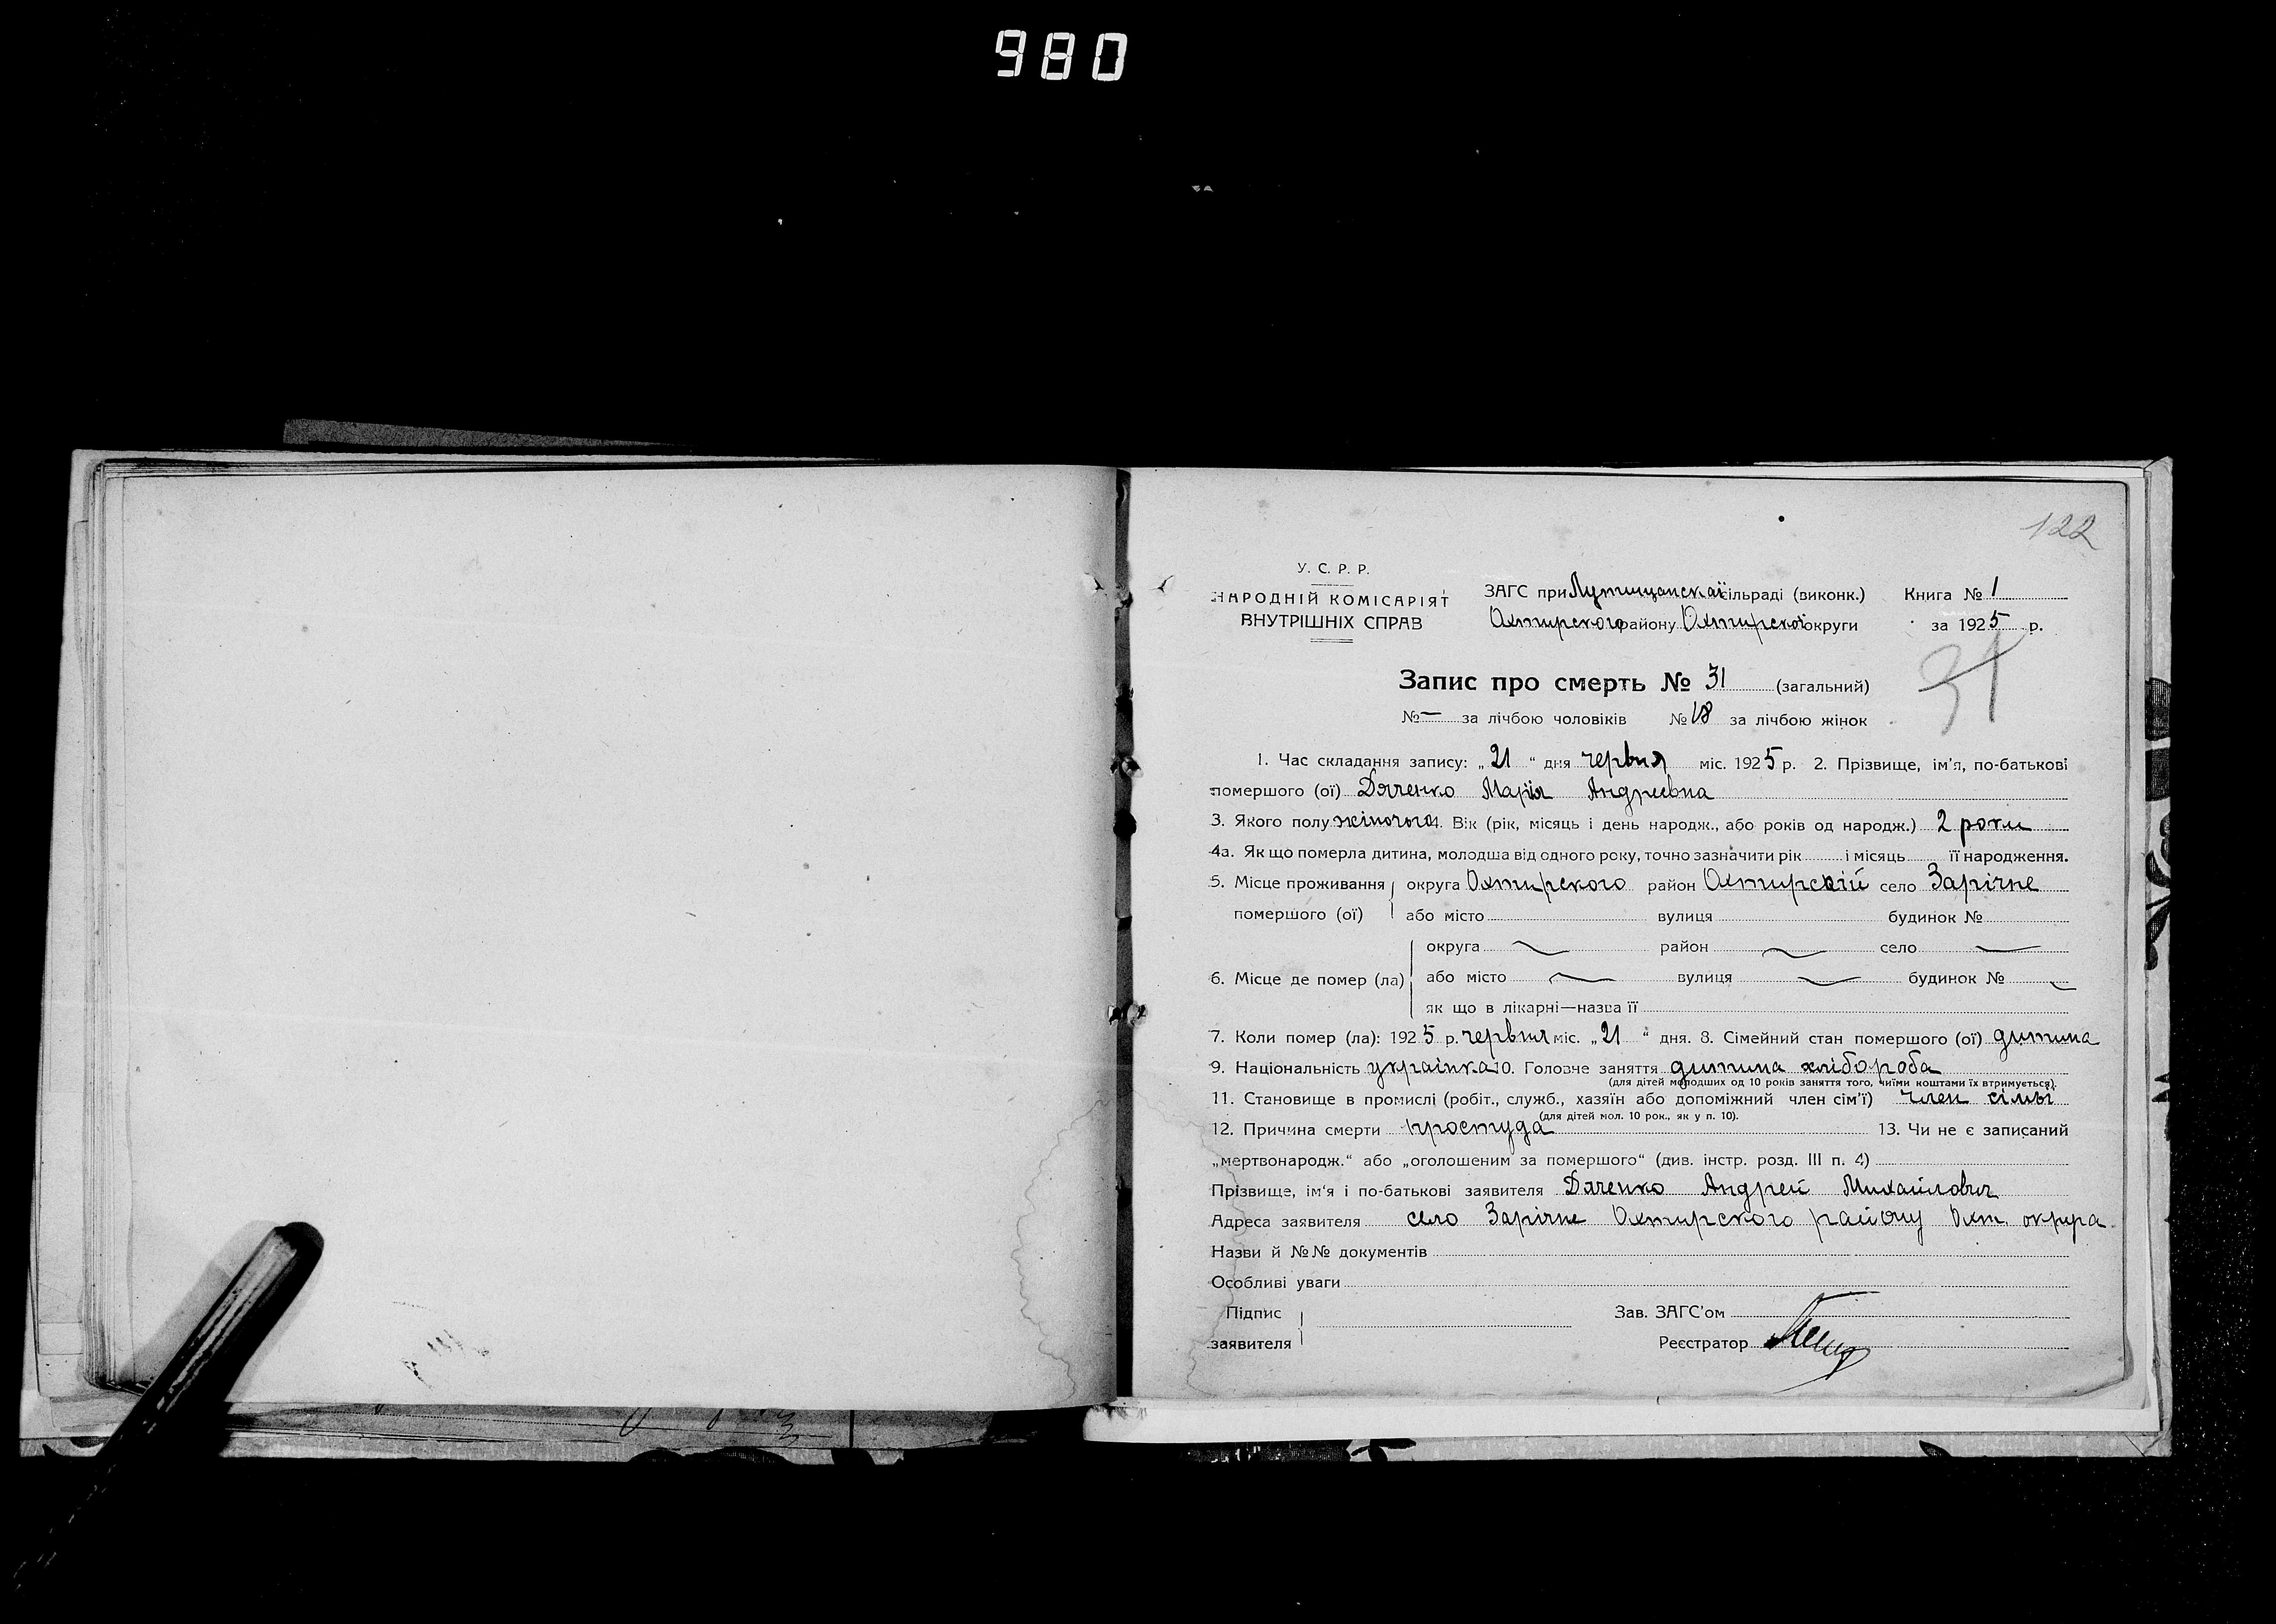 980
122
У. С. Р. Р.
НАРОДНІЙ КОМІСАРІЯТ
ВНУТРІШНІХ СПРАВ
ЗАГС при Лутищанскаї сільраді (виконк.) Книга № 1
Охтирского району Охтирскої округи за 1925 р.
31
Запис про смерть № 31 (загальний)
№ — за лічбою чоловіків № 18 за лічбою жінок
1. Час складання запису: „21“ дня червня міс. 1925 р. 2. Прізвище, ім'я, по-батькові
помершого (ої) Дяченко Марія Андреевна
3. Якого полу жіночого 4. Вік (рік, місяць і день народж., або років од народж.) 2 роки
4а. Як що померла дитина, молодша від одного року, точно зазначити рік і місяць її народження.
5. Місце проживання округа Охтирского район Охтирскій село Зарічне
помершого (ої) або місто вулиця будинок №
округа — район — село —
6. Місце де помер (ла) або місто — вулиця — будинок № —
як що в лікарні—назва її
7. Коли помер (ла): 1925 р. червня міс. „21“ дня. 8. Сімейний стан помершого (ої) дитина
9. Національність українка 10. Головне заняття дитина хлібороба
(для дітей молодших од 10 років заняття того, чиїми коштами їх втримується).
11. Становище в промислі (робіт., служб., хазяїн або допоміжний член сім'ї) член сімьї
(для дітей мол. 10 рок., як у п. 10).
12. Причина смерти простуда 13. Чи не є записаний
„мертвонародж.“ або „оголошеним за помершого“ (див. інстр. розд. III п. 4)
Прізвище, ім'я і по-батькові заявителя Дяченко Андрей Михайлович
Адреса заявителя село Зарічне Охтирского району Охт. округа
Назви й №№ документів
Особливі уваги
Підпис Зав. ЗАГС'ом
заявителя Реєстратор